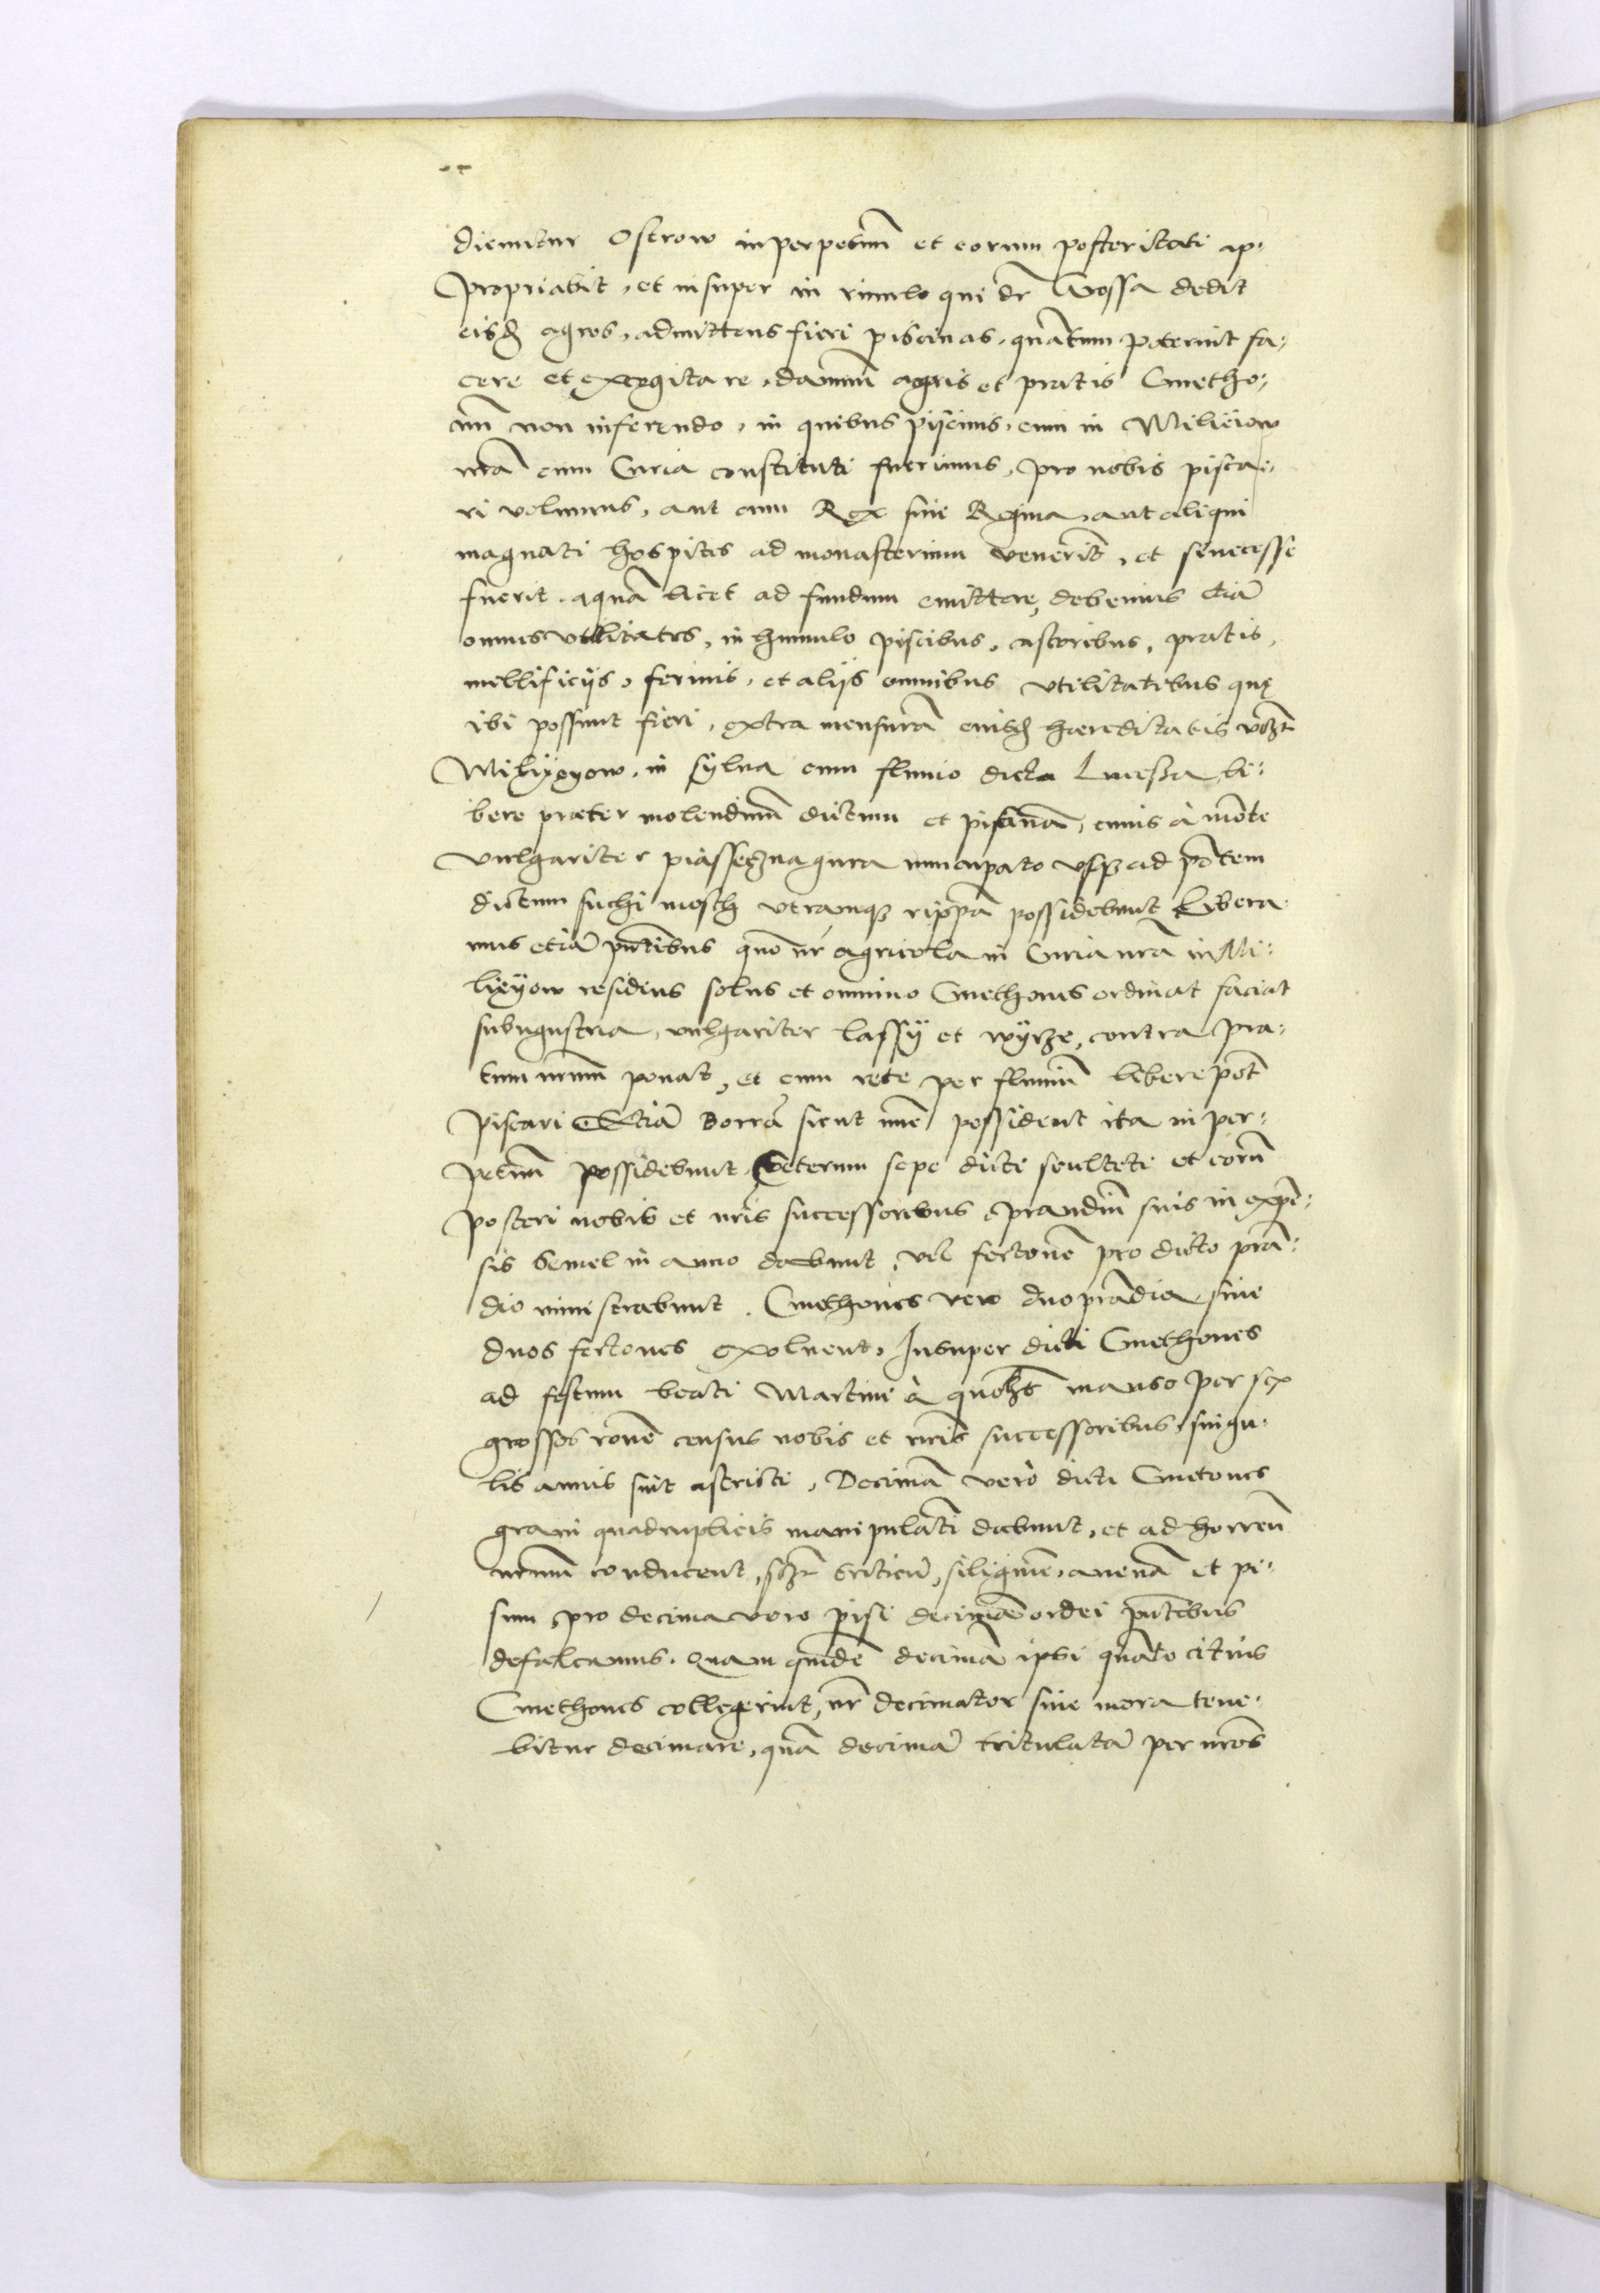 dicuntur Ostrow in perpetuũ et eorum posteritati ap⸗
propriabit, et insuper in riuulo qui dr̃ Wossa dedit
eisdẽ agros, admittens fieri piscinas, quãtum poterint fa⸗
cere et excogitare, damnũ agris et pratis Cmetho⸗
nũ non inferendo, in quibus piscinis, cum in Milieiow
nrã cum Curia constituti fuerimus, pro nobis pisca⸗
ri volumus, aut cum Rex siue Regina, aut aliqui
magnati hospites ad monasterium venerĩt, et si necesse
fuerit aquã licet ad fundum emittere, debemus etiã
omnes vtilitates, in humulo piscibus, castoribus, pratis,
mellificijs, ferinis, et alijs omnibus vtilitatibus quę
ibi possunt fieri, extra mensurã eiusdẽ hæreditatis vczt
Milyeyow, in sylua cum fluuio dicta Luesza li⸗
bere præter molendinũ dictum et piscinã, cuius à mõte
vulgariter piassecznagura nuncupato vsqz ad põtem
dictum suchi mosth vtramqz rippã possidebunt Libera
mus etiã pñtibus quo nr̃ agricola in Curia nrã in Mi⸗
lieyow residens solus et omnino Cmethones ordinat faciat
subugustria, vulgariter lassÿ et wÿrze, contra pra⸗
tum nrũm ponat, et cum rete per fluuiũ libere põt
piscari Etiã dorrã sicut nũc possident ita in per⸗
petuũ possidebunt, Ceterum sepe dicti sculteti et eorũ
posteri nobis et nrĩs successoribus prandiũ suis in expẽ⸗
sis semel in anno dabunt, vel fertonẽ pro dicto prã⸗
dio ministrabunt. Cmethones vero duo prãdia siue
duos fertones exoluent, Insuper dicti Cmethones
ad festum beati Martini à quolzt manso per sex
grossos rõne census nobis et nrĩs successoribus, singu⸗
lis annis sint astricti, Decimã verò dicti Cmetones
grani quadruplicis manipulãti dabunt, et ad horreũ
nrũm conducent, sczt triticũ, siliginẽ, auenã et pi⸗
sum, pro decima vero pisi decimã ordei pñtibus
defalcamus. Quam quidẽ decimã ipsi quãto citius
Cmethones collegerint, nr̃ decimator sine mora tene⸗
bitur decimare, quã decimã trituluatã per nrõs